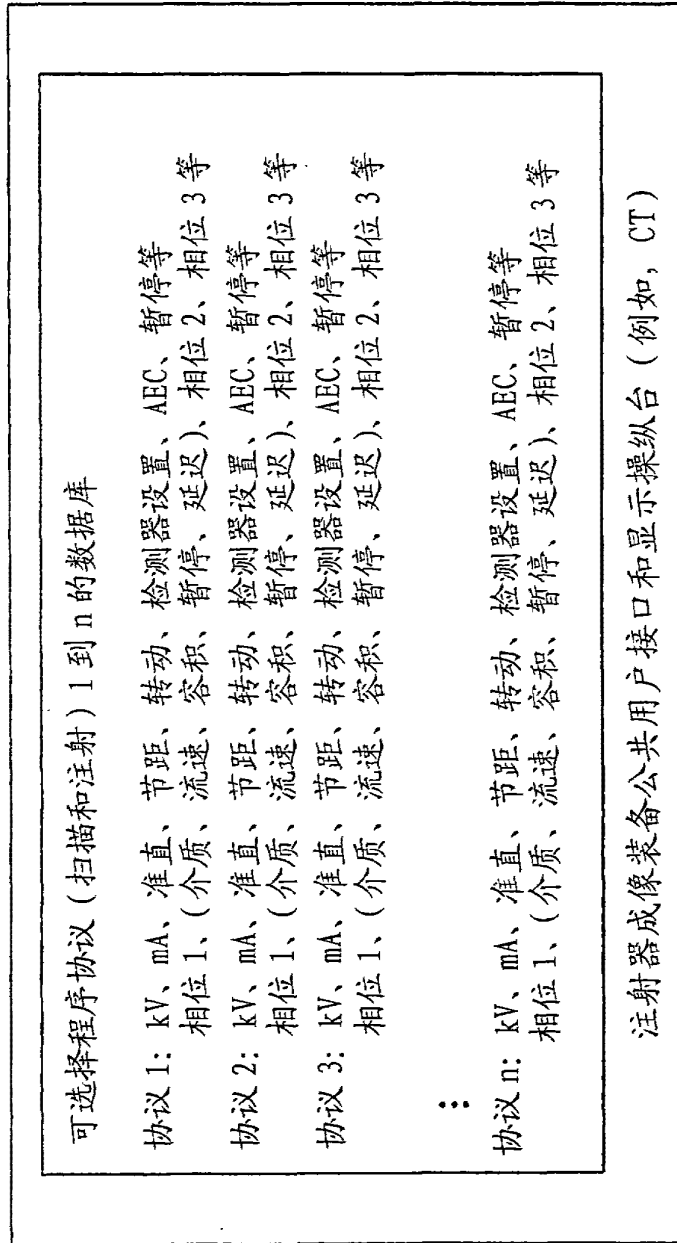 可选择程序协议(扫描和注射)1到n的数据库
协议1: kV、mA、准直、节距、转动、检测器设置、AEC、暂停等
相位1、(介质、流速、容积、暂停、延迟)、相位2、相位3等
协议2: kV、mA、准直、节距、转动、检测器设置、AEC、暂停等
相位1、(介质、流速、容积、暂停、延迟)、相位2、相位3等
协议3: kV、mA、准直、节距、转动、检测器设置、AEC、暂停等
相位1、(介质、流速、容积、暂停、延迟)、相位2、相位3等
⋮
协议n: kV、mA、准直、节距、转动、检测器设置、AEC、暂停等
相位1、(介质、流速、容积、暂停、延迟)、相位2、相位3等
注射器成像装备公共用户接口和显示操纵台(例如, CT)